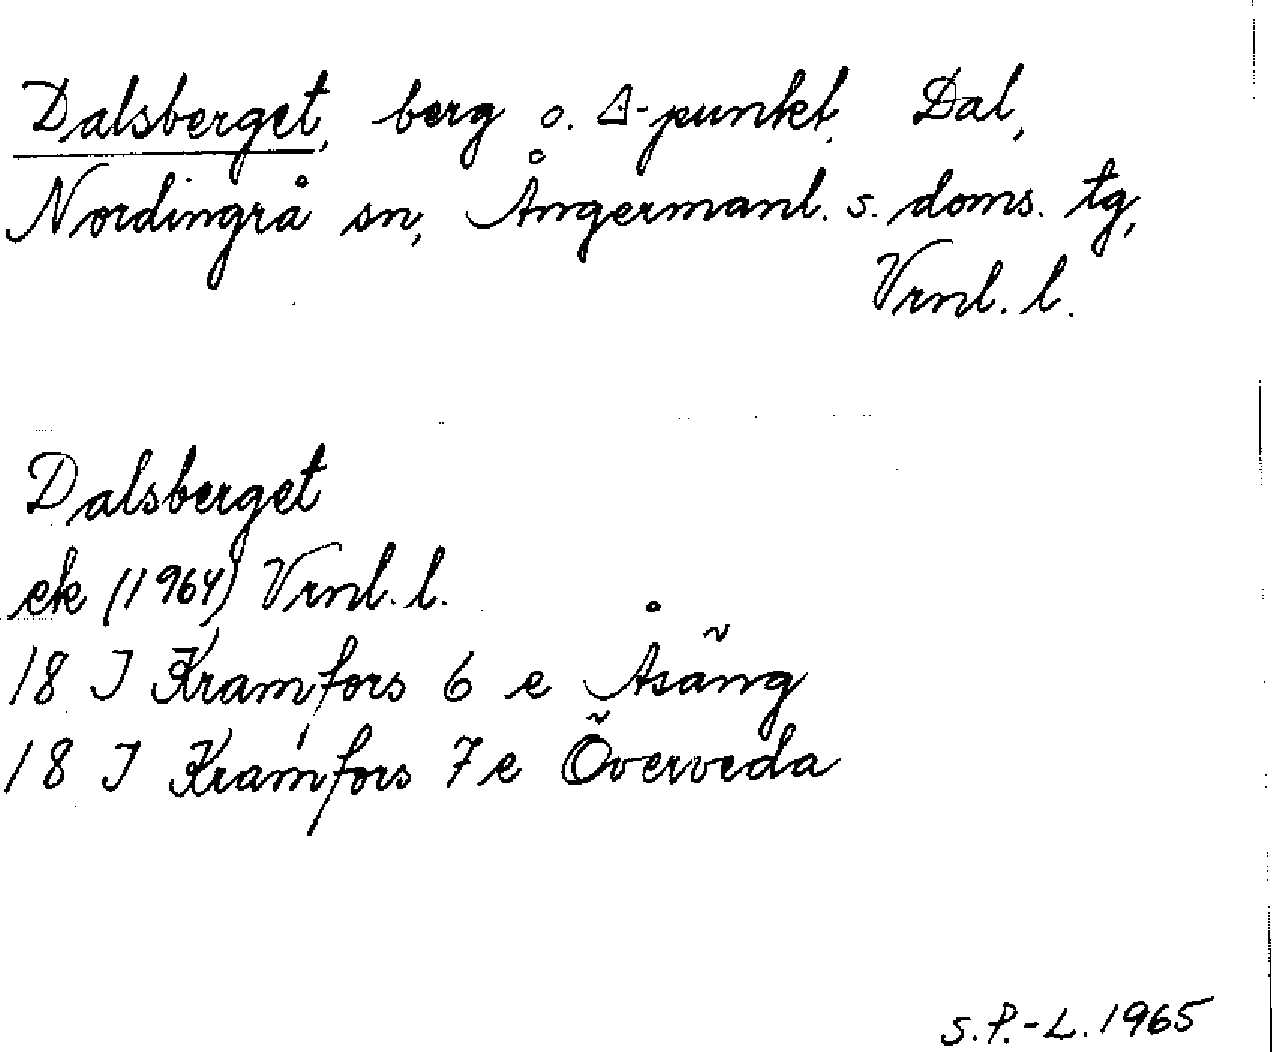 Dalsberget, berg o. Δ-punkt, Dal,
Nordingrå sn, Ångermanl. s. doms. tg,
Vrnl. l.
Dalsberget
ek (1964) Vrnl. l.
18 I Kramfors 6 e Åsäng
18 I Kramfors 7 e Överveda
S.P.-L. 1965